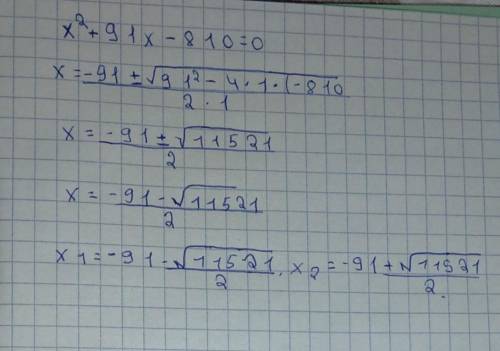 x² + 91x - 810 = 0
x = -91 ± √91² - 4 · 1 · (-810
2 · 1
x = -91 ± √11521
2
x = -91 - √11521
2
x1 = -91 - √11521, x2 = -91 + √11521
2 2.